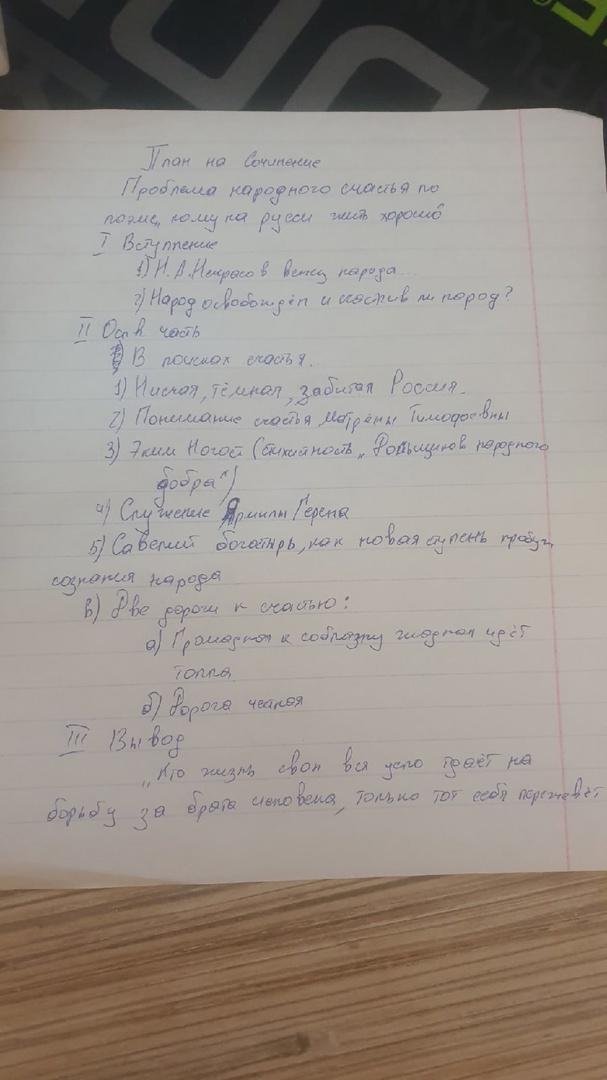 PLANE
План на Сочинение
Проблема народного счастья по
поэме „кому на русси жить хорошо"
I Вступление
1) Н.А.Некрасов певец народа...
2) Народ освобождён и счастлив ли народ?
II Осн часть
В поисках счастья.
1) Нищая, тёмная, забитая Россия.
2) Понимание счастья Матрёны Тимофеевны
3) Яким Ногой (стихитность „
добра")
4) Служение Ярмилы Герена
5) Савелий богатырь, как новая ступень
сознания народа
в) Две дороги к счастью:
а) Громадная к соблазну жадная идёт
толпа
б) Дорога честная
III Вывод
„Кто жизнь свою всю на
борьбу за брата человека, только тот себя переживёт